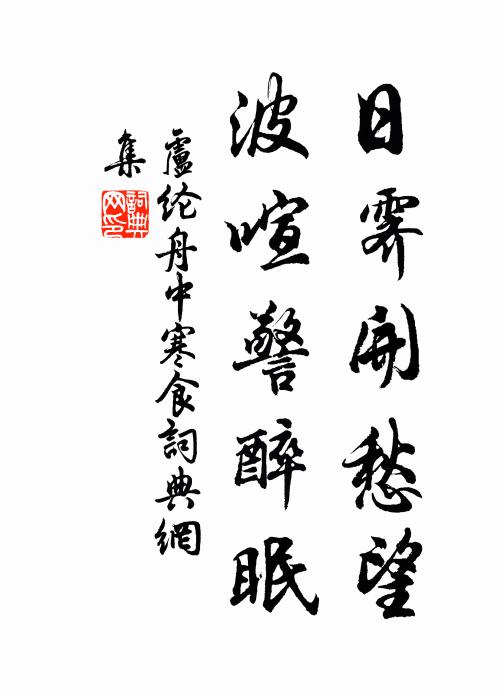 日霽開愁望
波喧警醉眠
盧纶舟中寒食詞典網
集
詞典
网印